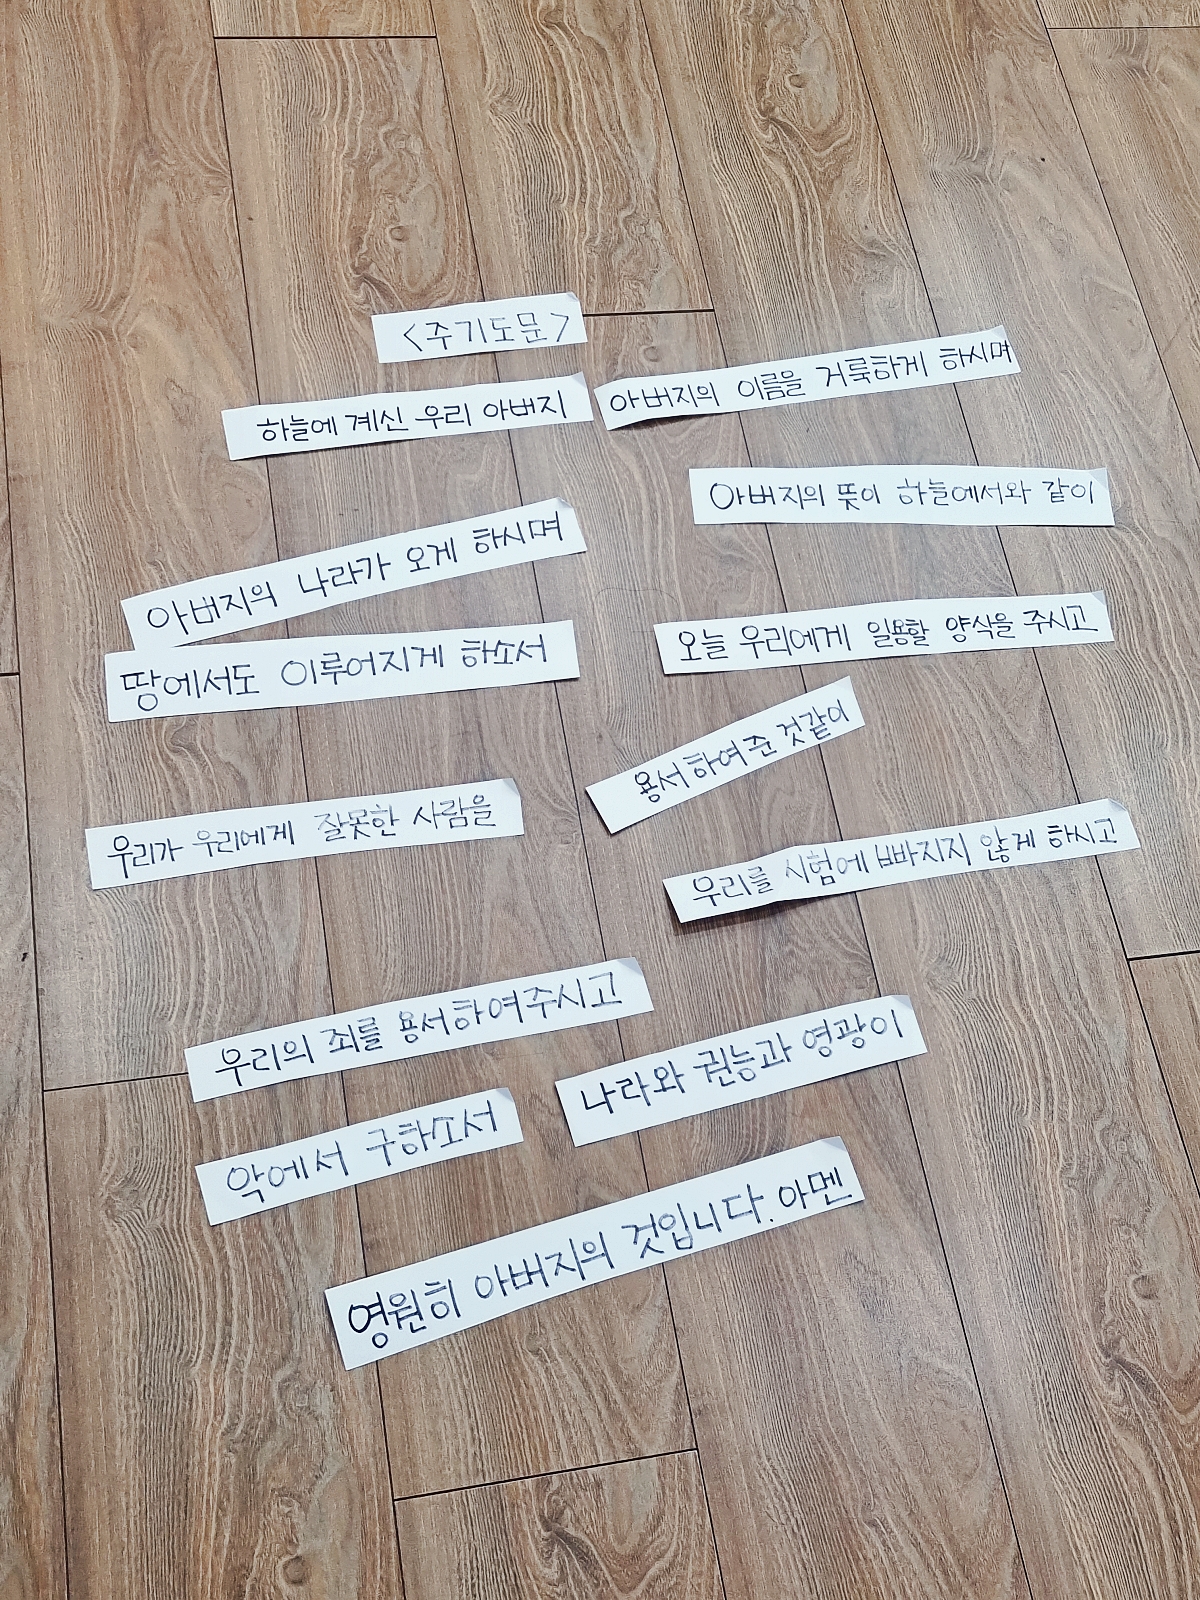 <주기도문>
하늘에 계신 우리 아버지
아버지의 이름을 거룩하게 하시며
아버지의 나라가 오게 하시며
아버지의 뜻이 하늘에서와 같이
땅에서도 이루어지게 하소서
오늘 우리에게 일용할 양식을 주시고
우리가 우리에게 잘못한 사람을
용서하여 준 것같이
우리를 시험에 빠지지 않게 하시고
우리의 죄를 용서하여주시고
나라와 권능과 영광이
악에서 구하소서
영원히 아버지의 것입니다. 아멘